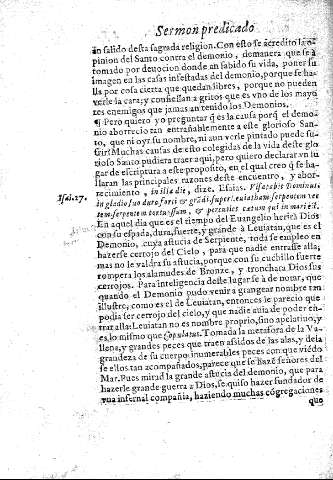 Sermon predicado
an salido desta sagrada religion. Con esto se acredito la o
pinion del Santo contra el demonio, demanera que se à
tomado por deuocion donde an sabido su vida, poner su
imagen en las casas infestadas del demonio, porque se ha-
lla por cosa cierta que quedan libres, porque no pueden
verle la cara; y confiessan a gritos que es vno de los mayo
res enemigos que jamas an tenido los Demonios.
¶ Pero quiero yo preguntar q̃ es la causa porq̃ el demo-
nio aborrecio tan entrañablemente a este glorioso San-
to, que ni oyr su nombre, ni aun verle pintado puede su-
frir? Muchas causas de esto colegidas de la vida deste glo
rioso Santo pudiera traer aqui, pero quiero declarar vn lu
gar de escriptura a este proposito, en el qual creo q̃ se ha-
llaran las principales razones deste encuentro, y abor-
Isai. 27.
recimiento, in illa die, dize. Esaias. Visitabit Dominus
in gladio suo duro forti & grãdi super leuiatham serpentem vec
tem serpentem tortuossum, & percutiet cætum qui in mari est.
En aquel dia que es el tiempo del Euangelio herirá Dios
con su espada, dura, fuerte, y grande à Leuiatan, que es el
Demonio, cuya astucia de Serpiente, toda se empleo en
hazerse cerrojo del Cielo, para que nadie entrasse alla;
mas no le valdra su astucia, porque con su cuchillo fuerte
rompera los alamudes de Bronze, y tronchara Dios sus
cerrojos. Para inteligencia deste lugar se à de notar, que
quando el Demonio pudo venir a grangear nombre tan
illustre, como es el de Leuiatan, entonces le parecio que
podia ser cerrojo del cielo, y que nadie auia de poder en-
trar alla: Leuiatan no es nombre proprio, sino apelatiuo, y
es lo mismo que Copulatus. Tomada la metafora de la Va
llena, y grandes peces que traen assidos de las alas, y de la
grandeza de su cuerpo inumerables peces con que viẽdo
se ellos tan acompañados, parece que se hazẽ señores del
Mar. Pues mirad la grande astucia del demonio, que para
hazerle grande guerra a Dios, se quiso hazer fundador de
vna infernal compañia, haziendo muchas cõgregaciones
que